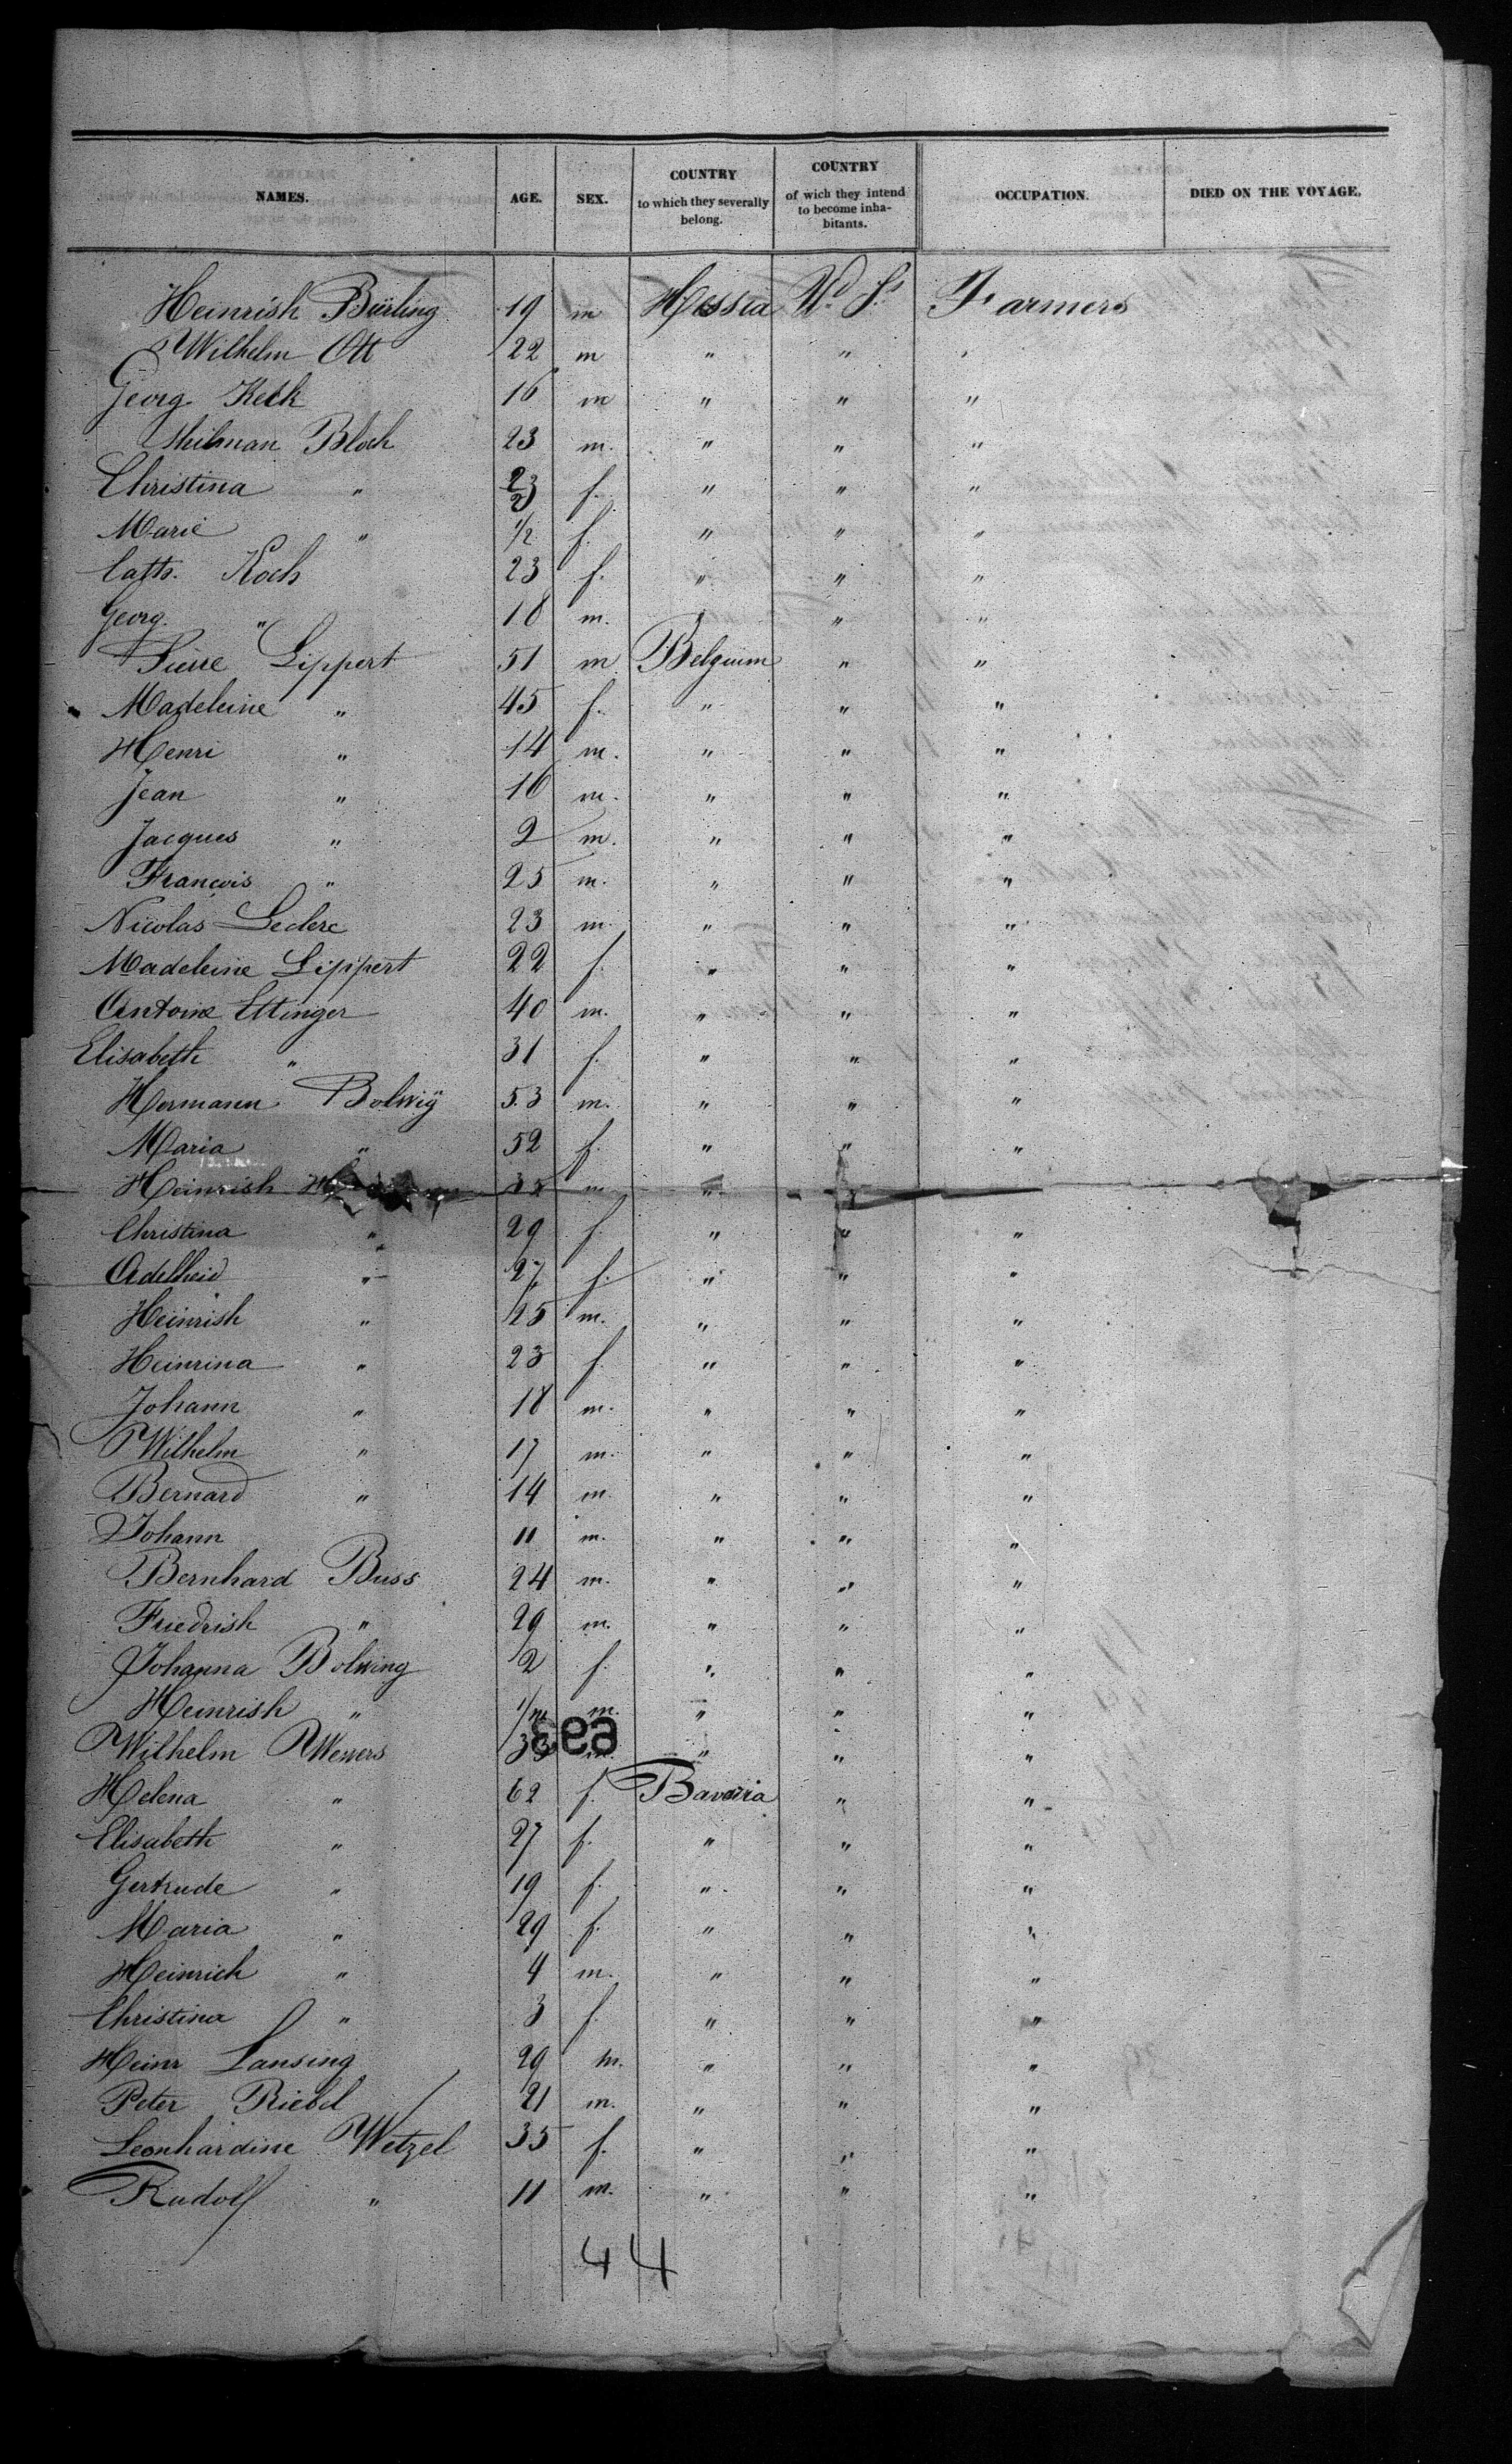 NAMES. AGE. SEX. COUNTRY to which they severally belong. COUNTRY of wich they intend to become inhabitants. OCCUPATION. DIED ON THE VOYAGE.
Heinrish Bürling 19 m Hessia Ud. St. Farmers
Wilhelm Ott 22 m " " "
Georg Keck 16 m " " "
Bloch 23 m. " " "
Christina " 23 f. " " "
Marie " 1/2 f. " " "
Cath. Koch 23 f. " " "
Georg. " 18 m. " " "
Pierre Lippert 51 m Belguim " "
Madeleine " 45 f. " " "
Henri " 14 m. " " "
Jean " 16 m. " " "
Jacques " 2 m. " " "
François " 25 m. " " "
Nicolas Leclerc 23 m. " " "
Madeleine Lippert 22 f. " " "
Antoine Ettinger 40 m. " " "
Elisabeth " 31 f. " " "
Hermann Bolwig 53 m. " " "
Maria " 52 f. " " "
Heinrish m "
Christina " 29 f. " " "
Adelheid " 27 f. " " "
Heinrish " 25 m. " " "
Heinrina " 23 f. " " "
Johann " 18 m. " " "
Wilhelm " 17 m. " " "
Bernard " 14 m. " " "
Johann 11 m. " " "
Bernhard Buss 24 m. " " "
Friedrish " 29 m. " " "
Johanna Bolwing 2 f. " " "
Heinrish " 1/m m. " " "
693
Wilhelm Wewers 33 m. " " "
Helena " 62 f. Bavaria " "
Elisabeth " 27 f. " " "
Gertrude " 19 f. " " "
Maria " 29 f. " " "
Heinrich " 4 m. " " "
Christina " 3 f. " " "
Heinr Lansing 29 m. " " "
Peter Riebel 21 m. " " "
Leonhardine Wetzel 35 f. " " "
Rudolf " 11 m. " " "
44